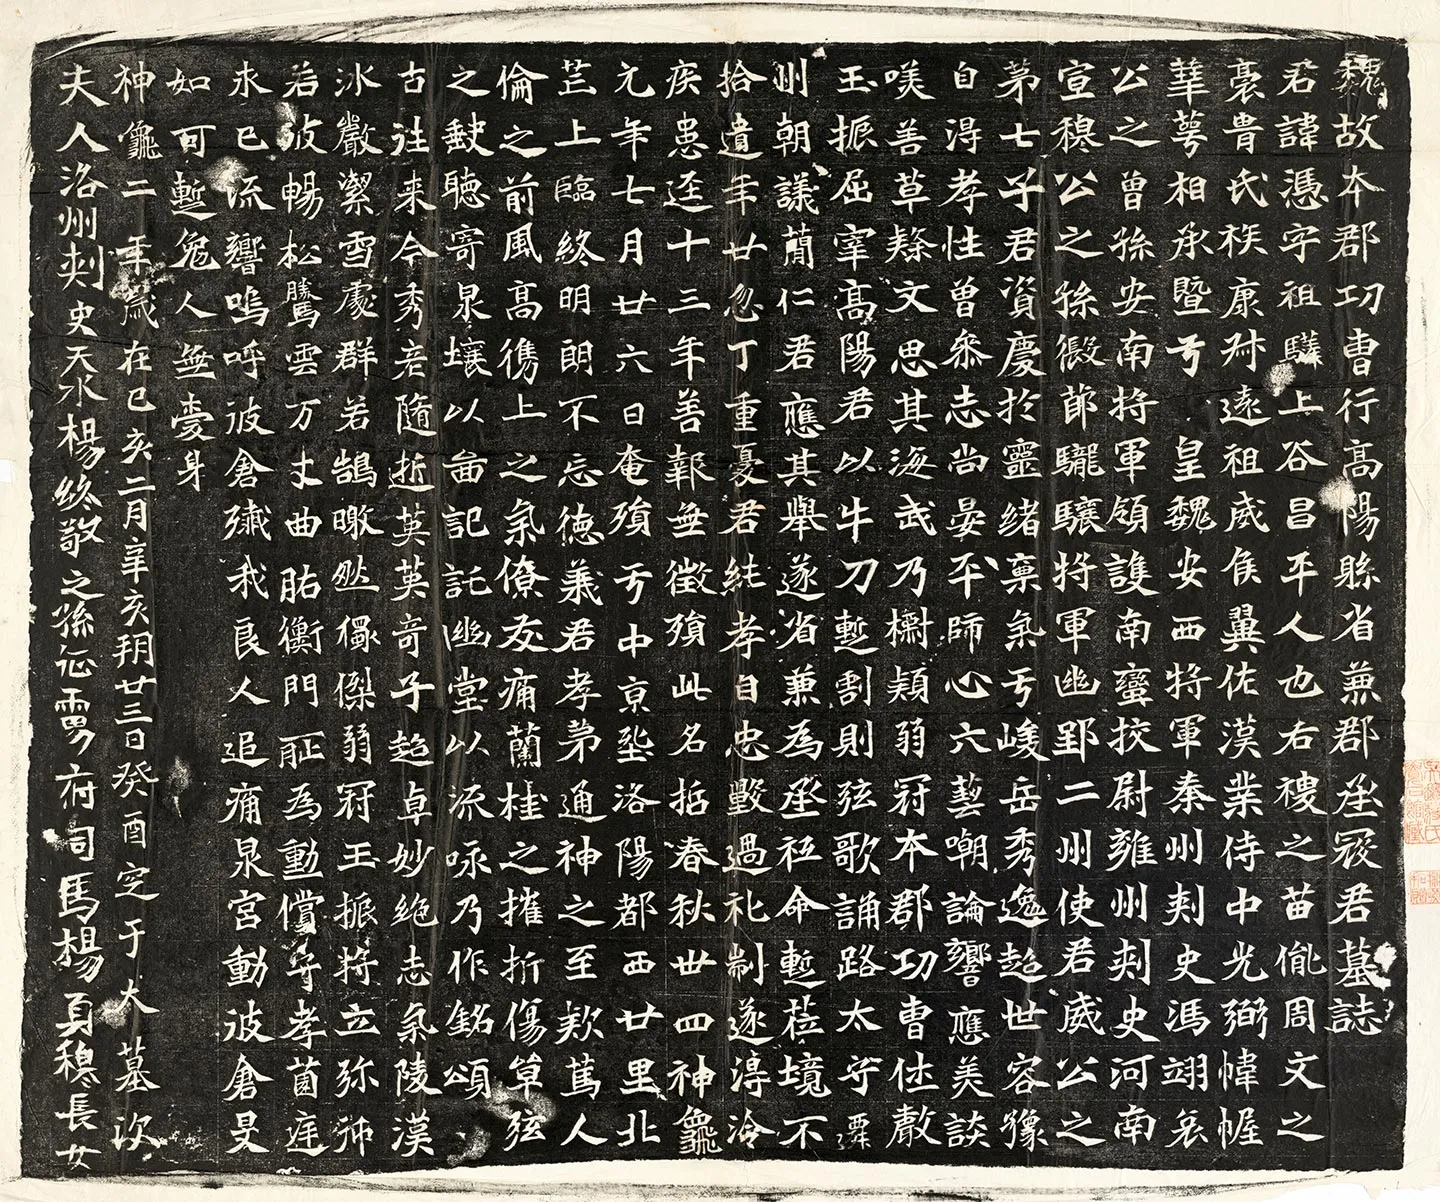 魏故本郡功曹行高陽縣省兼郡丞寇君墓誌
君諱憑字祖驎上谷昌平人也右稷之苗胤周文之
裔胄氏族康尌遠祖威侯翼佐漢業侍中光弼幃幄
華萼相承暨于皇魏安西將軍秦州刾史馮翊哀
公之曾孫安南將軍領護南蠻挍尉雍州刾史河南
宣穆公之孫假節龍驤將軍幽郢二州使君威公之
第七子君資慶於靈緒稟氣于嶐岳秀逸超世容豫
自淂孝性曾叅志尚晏平師心六藝嘲論響應美談
嘆善草䋣文思其海武乃欟頴弱冠本郡功曹仕㪣
玉振屈宰高陽君以牛刀蹔割則弦歌誦路太守譚
州朝議蕑仁君應其舉遂省兼為丞衹命蹔莅境不
拾遺年廿忽丁重憂君純孝自忠毀過礼制遂淂冷
疾患逕十三年善報無徵殞此名喆春秋卌四神龜
元年七月廿六日奄殞于中京𡊮洛陽都西廿里北
芒上臨終明朗不忘德義君孝苐通神之至歎萬人
倫之前風高儁上之氣僚友痛蘭桂之摧折傷草弦
之㱾聽寄泉壤以啚記託幽堂以流咏乃作銘頌
古往来今秀㤅隨逝英英竒子超卓妙絶志氣陵漢
冰嚴潔雪處群若鵠曒然獨傑弱冠玉振將立弥沖
若波暢松騰雲万丈曲肱衡門𦕼為動儻守孝菌庭
未已流響嗚呼彼倉殱我良人追痛泉宮動波倉旻
如可蹔免人無㤅身
神龜二年歲在己亥二月辛亥朔廿三日癸酉窆于大墓次
夫人洛州刾史天水楊終敬之孫征虜府司馬楊貟穆長女